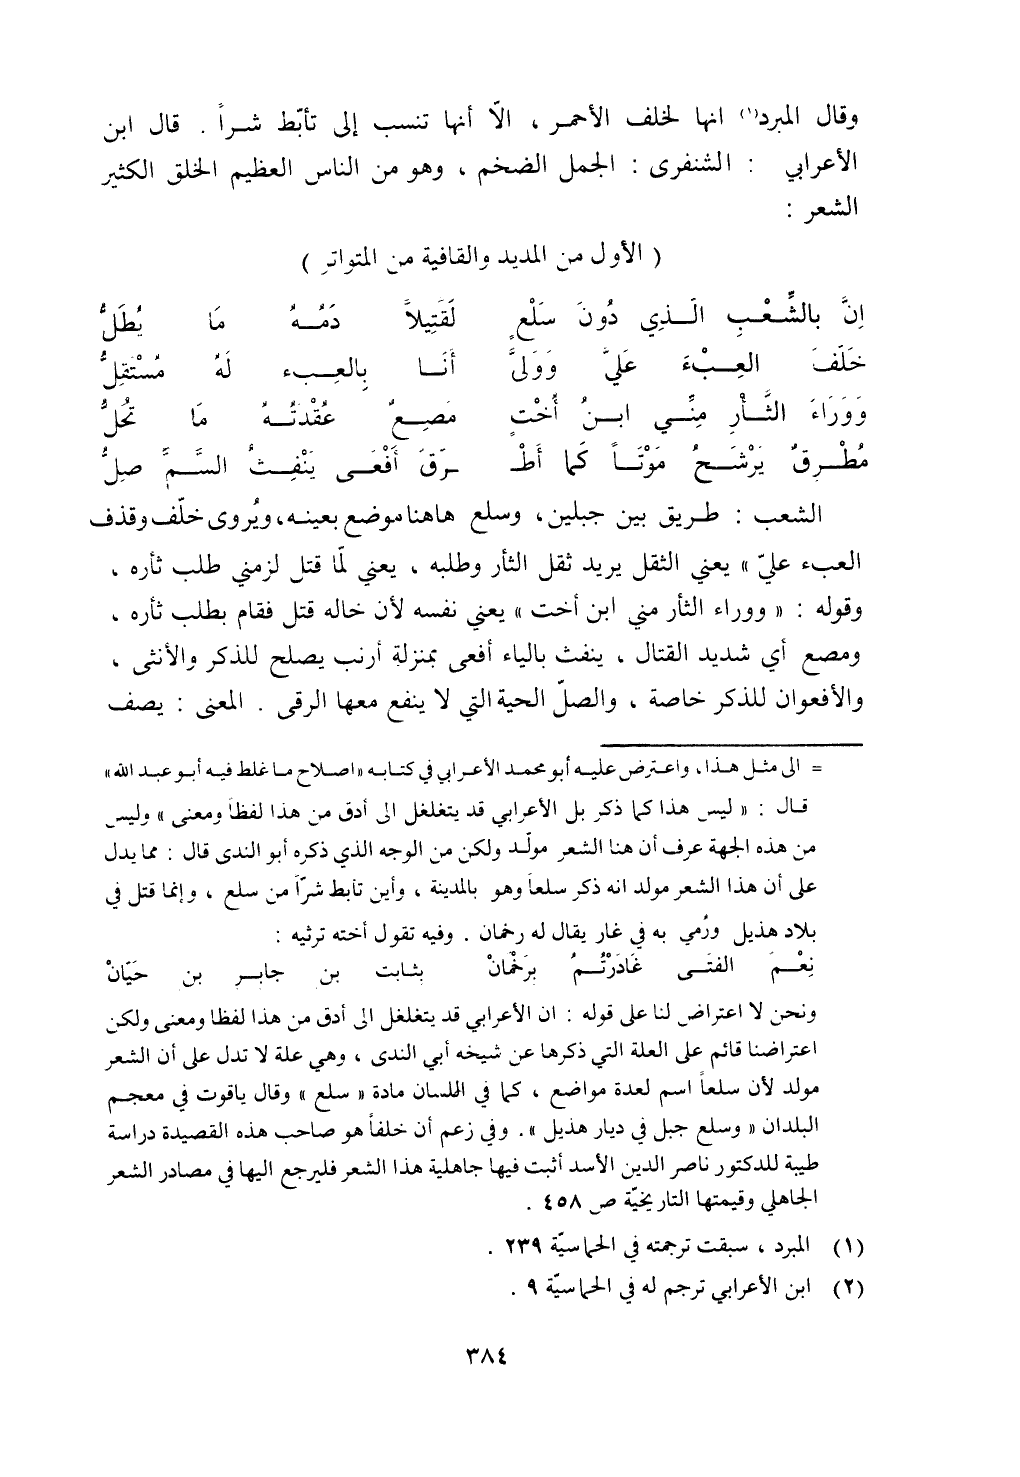 وقال المبرد(١) انها لخلف الأحمر ، الّا أنها تنسب إلى تأبّط شراً . قال ابن
الأعرابي : الشنفرى : الجمل الضخم ، وهو من الناس العظيم الخلق الكثير
الشعر :
( الأول من المديد والقافية من المتواتر )
إنَّ بالشِّعْبِ الَّذِي دُونَ سَلْعٍ لَقَتِيلاً دَمُهُ مَا يُطَلُّ
خَلَفَ العِبْءَ عَلَيَّ وَوَلَّى أَنَا بِالعِبء لَهُ مُسْتَقِلُّ
وَوَرَاءَ الثَّأْرِ مِنِّي ابنُ أُخْتٍ مَصِعٌ عُقْدَتُهُ مَا تُحَلُّ
مُطْرِقٌ يَرْشَحُ مَوْتَاً كَمَا أَطْـ ـرَقَ أَفْعَى يَنْفِثُ السَّمَّ صِلُّ
الشعب : طريق بين جبلين، وسلع هاهنا موضع بعينه، ويُروى خلّف وقذف
العبء عليّ » يعني الثقل يريد ثقل الثأر وطلبه ، يعني لمّا قتل لزمني طلب ثأره ،
وقوله : « ووراء الثأر مني ابن أخت » يعني نفسه لأن خاله قتل فقام بطلب ثأره ،
ومصع أي شديد القتال ، ينفث بالياء أفعى بمنزلة أرنب يصلح للذكر والأنثى ،
والأفعوان للذكر خاصة ، والصلّ الحية التي لا ينفع معها الرقى . المعنى : يصف
= الى مثل هذا، واعترض عليه أبو محمد الأعرابي في كتابه «اصلاح ما غلط فيه أبو عبد الله»
قال : « ليس هذا كما ذكر بل الأعرابي قد يتغلغل الى أدق من هذا لفظاً ومعنى » وليس
من هذه الجهة عرف أن هنا الشعر مولّد ولكن من الوجه الذي ذكره أبو الندى قال : مما يدل
على أن هذا الشعر مولد انه ذكر سلعاً وهو بالمدينة ، وأين تأبط شرّاً من سلع ، وإنما قتل في
بلاد هذيل ورُمي به في غار يقال له رخمان . وفيه تقول أخته ترثيه :
نِعْمَ الفَتَى غَادَرْتُمُ بِرَخْمَانْ بثابت بن جابر بن حَيَّانْ
ونحن لا اعتراض لنا على قوله : ان الأعرابي قد يتغلغل الى أدق من هذا لفظا ومعنى ولكن
اعتراضنا قائم على العلة التي ذكرها عن شيخه أبي الندى ، وهي علة لا تدل على أن الشعر
مولد لأن سلعاً اسم لعدة مواضع ، كما في اللسان مادة « سلع » وقال ياقوت في معجم
البلدان « وسلع جبل في ديار هذيل ». وفي زعم أن خلفاً هو صاحب هذه القصيدة دراسة
طيبة للدكتور ناصر الدين الأسد أثبت فيها جاهلية هذا الشعر فليرجع اليها في مصادر الشعر
الجاهلي وقيمتها التاريخيّة ص ٤٥٨ .
(١) المبرد ، سبقت ترجمته في الحماسيّة ٢٣٩ .
(٢) ابن الأعرابي ترجم له في الحماسيّة ٩ .
٣٨٤